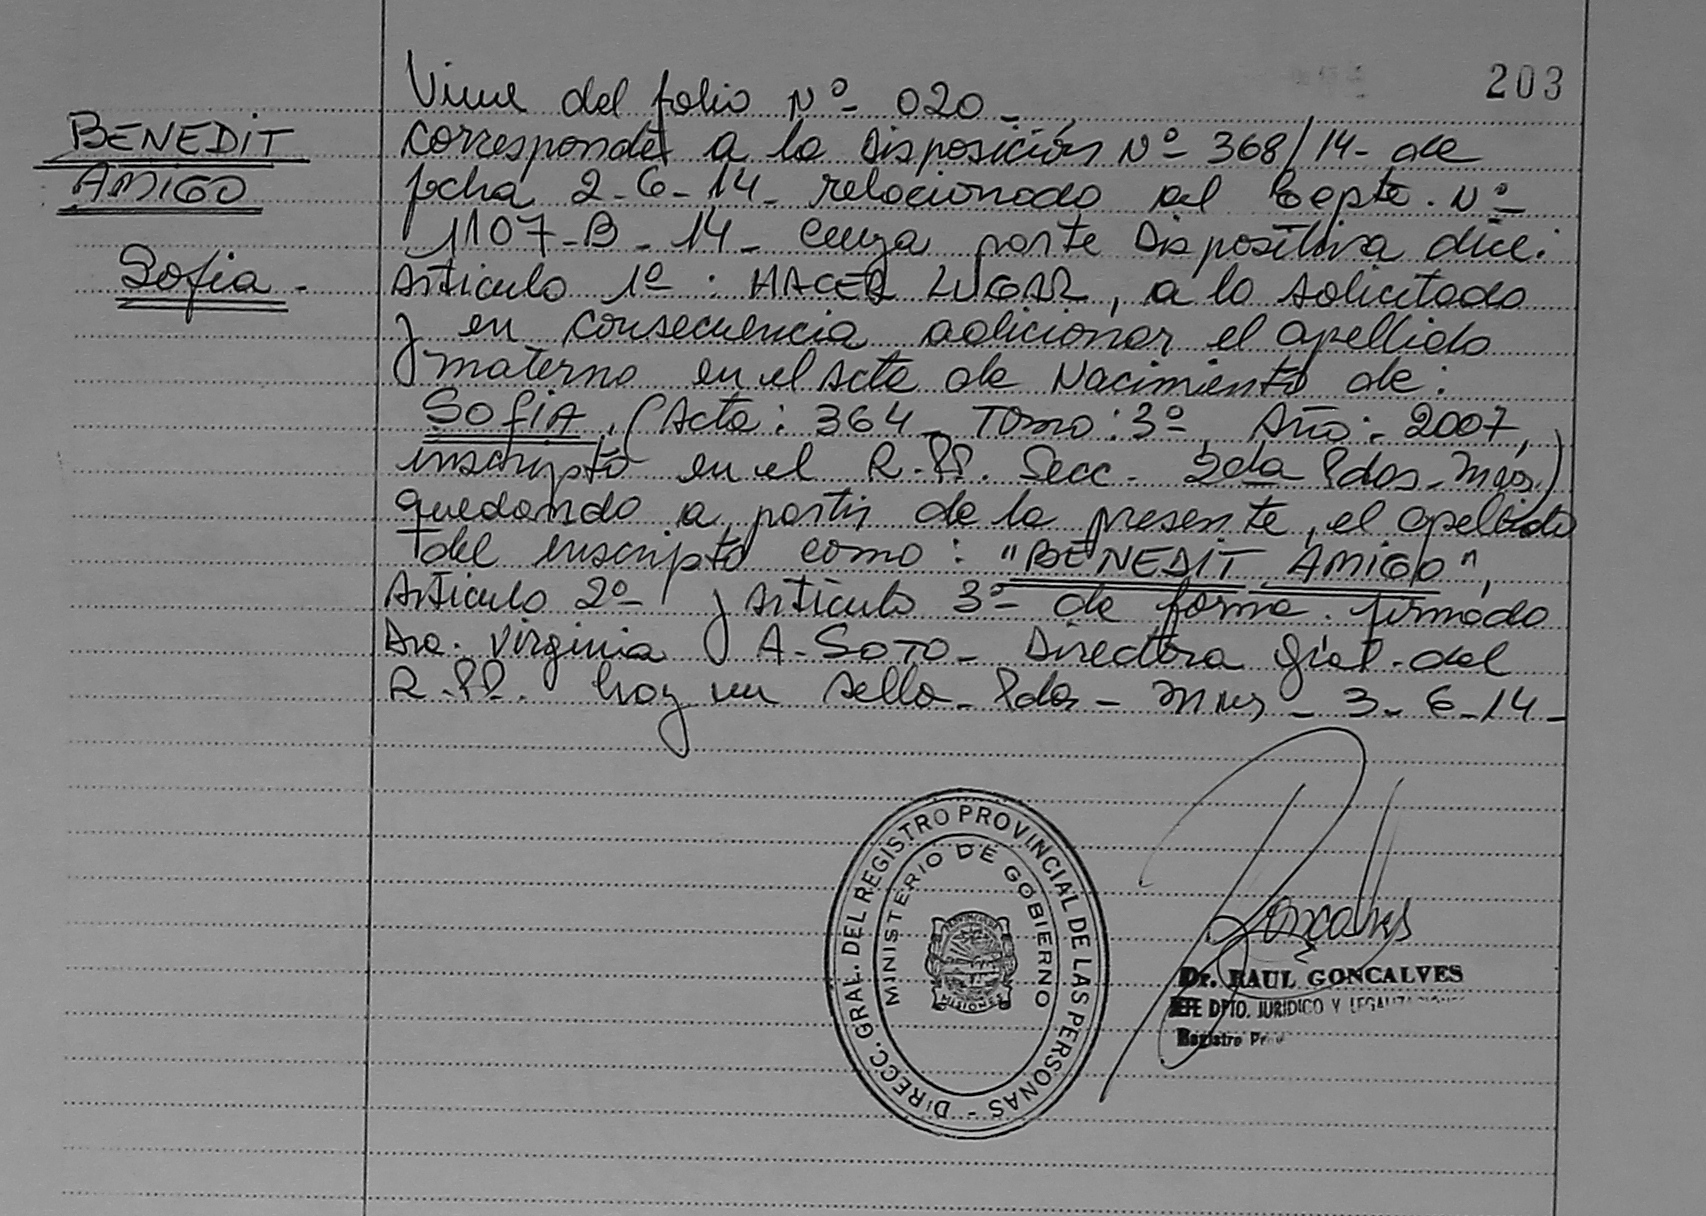 203
Viene del folio Nº 020_
BENEDIT
AMIGO
Sofia.
corresponde a la Disposición Nº 368/14- de
fecha 2-6-14- relacionado al Expte. Nº
1107-B-14- cuya parte Dispositiva dice:
Artículo 1º: HACER LUGAR, a lo solicitado
y en consecuencia adicionar el apellido
materno en el Acta de Nacimiento de:
SOFIA, (Acta: 364_ Tomo: 3º, Año: 2007,
inscripto en el R.PP. Secc. 2da Pdas-Mnes.)
quedando a partir de la presente, el apellido
del inscripto como: "BENEDIT AMIGO",
Artículo 2º y Artículo 3º de forma. firmado
Dra. Virginia A. SOTO_ Directora Gral. del
R.PP. hay un sello_ Pdas - Mnes_ 3-6-14_
DIRECC. GRAL. DEL REGISTRO PROVINCIAL DE LAS PERSONAS -
MINISTERIO DE GOBIERNO
MISIONES
Goncalves
Dr. RAUL GONCALVES
JEFE DPTO. JURIDICO Y LEGALIZACIONES
Registro